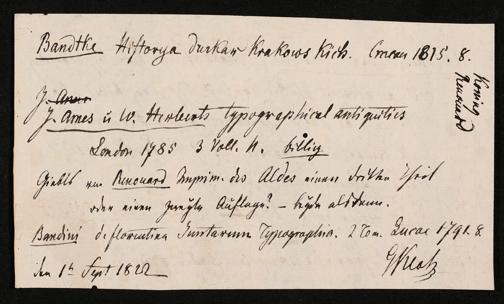 Bandtke Historya Drukarn Krakowskich. Cracau 1815. 8.
Renouard
J. Ames
J. Ames u W. Herberts typographical antiquities
London 1785 3 Voll. 4. billig
Giebts von Renouard Imprim. des Aldes einen dritten Theil
oder eine zweyte Auflage? – bitte alsdann.
Bandini de florentina Juntarum Typographia. 2 Tom. Lucae 1791. 8.
den 1t Sept 1822